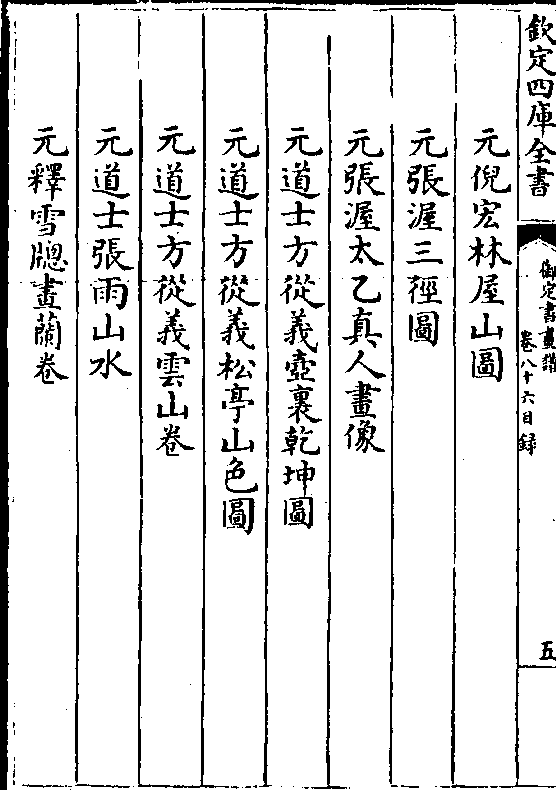 欽定四庫全書
御定書畫譜
卷八十六目録
五
元倪宏林屋山圖
元張渥三徑圖
元張渥太乙真人畫像
元道士方從義壺裏乾坤圖
元道士方從義松亭山色圖
元道士方從義雲山卷
元道士張雨山水
元釋雪牕畫蘭卷